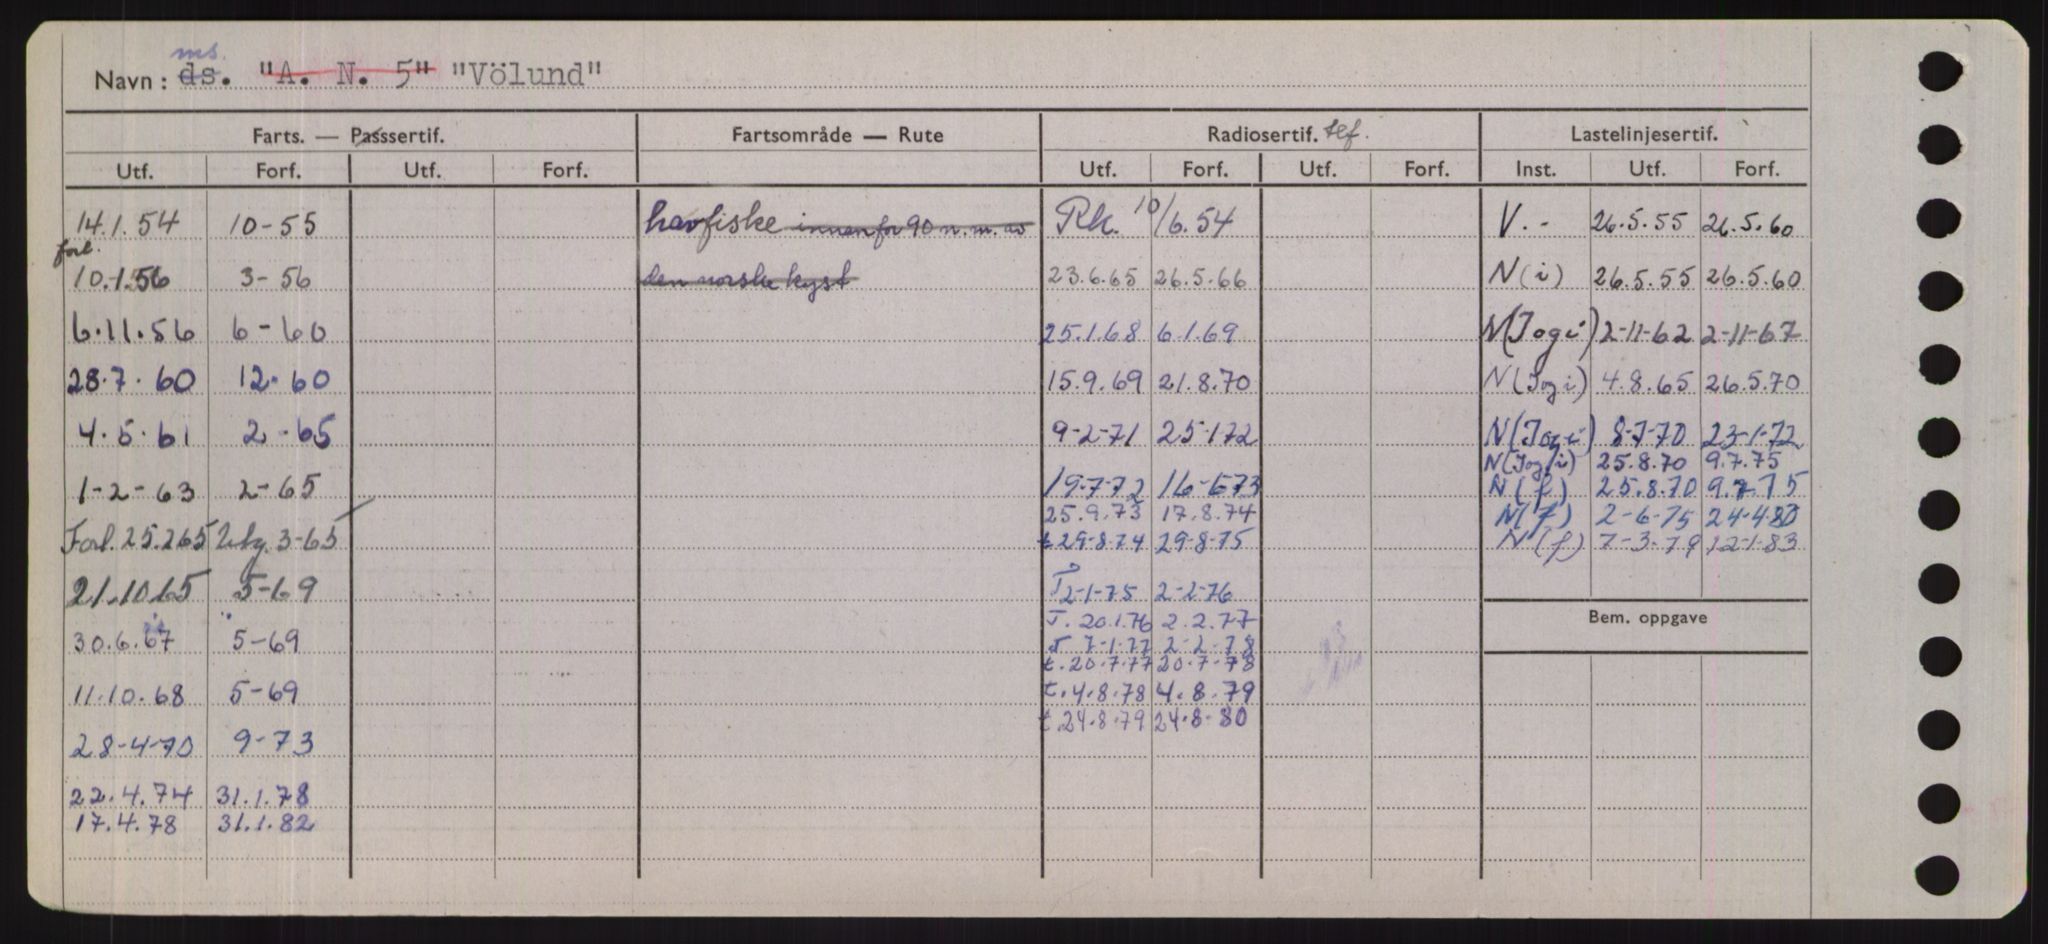 ms.
Navn: ds. "A. N. 5" "Völund"
Farts. — Passsertif. Fartsområde — Rute Radiosertif. tlf. Lastelinjesertif.
Utf. Forf. Utf. Forf. Utf. Forf. Utf. Forf. Inst. Utf. Forf.
14.1.54 10-55 havfiske innenfor 90 n.m. av Rk. 10/6.54 V.- 26.5.55 26.5.60
forl.
10.1.56 3-56 den norske kyst 23.6.65 26.5.66 N(i) 26.5.55 26.5.60
6.11.56 6-60 25.1.68 6.1.69 N(I og i) 2-11-62 2-11-67
28.7.60 12.60 15.9.69 21.8.70 N(I og i) 4.8.65 26.5.70
4.5.61 2-65 9-2-71 25-1-72 N(I og i) 8-7-70 23-1-72
N(I og i) 25.8.70 9.7.75
1-2-63 2-65 19-7-72 16-6-73 N(f) 25.8.70 9.7.75
25.9.73 17.8.74 N(f) 2-6-75 24-4-80
Forl. 25.2.65 Utg. 3-65 t 29-8-74 29-8-75 N(f) 7-3-79 12-1-83
21.10.65 5-69 T 2-1-75 2-2-76
T. 20.1.76 2.2.77 Bem. oppgave
30.6.67 5-69 T 7-1-77 2-2-78
t. 20.7.77 20.7.78
11.10.68 5-69 t. 4.8.78 4.8.79
t 24.8.79 24.8.80
28-4-70 9-73
22.4.74 31.1.78
17.4.78 31.1.82